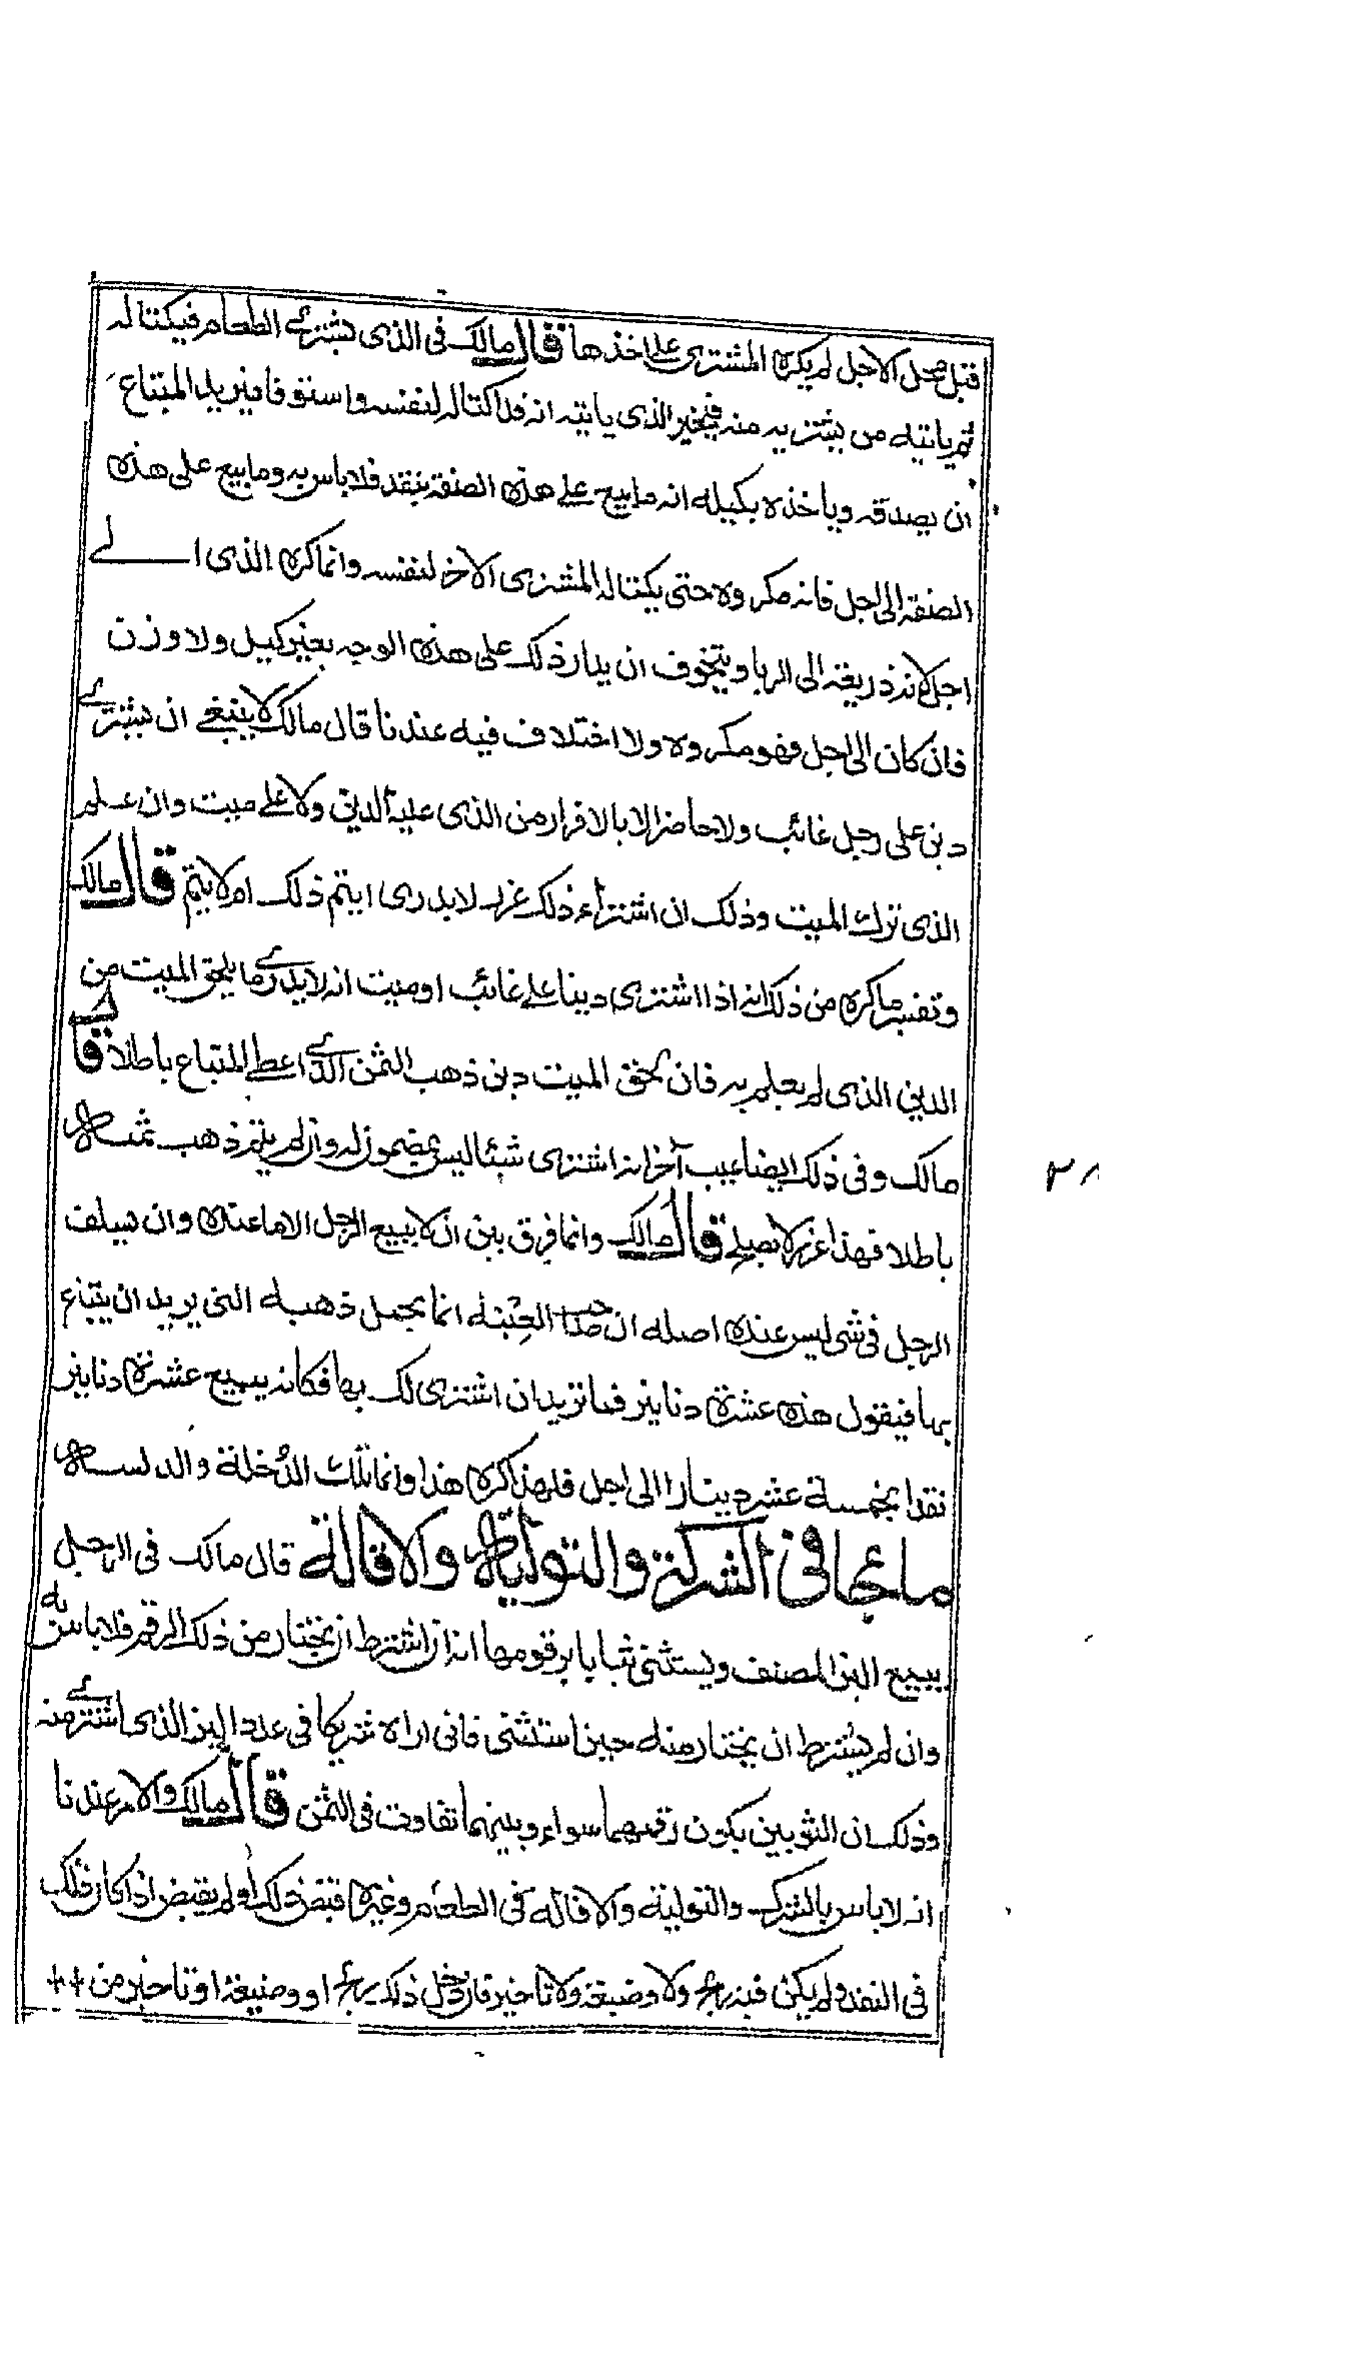 قبل محل الاجل لم يكره المشترى على اخذها قال مالك فى الذى يشترى الطعام فيكتاله
ثم ياتيه من يشتريه منه فيخبر الذى ياتيه انه قد اكتاله لنفسه واستوفا فيريد المبتاع
ان يصدقه وياخذه بكيله انه ما بيع على هذه الصفة بنقد فلا باس به وما بيع على هذه
الصفة الى اجل فانه مكروه حتى يكتاله المشترى الاخر لنفسه وانما كره الذى الى
اجل لانه ذريعة الى الربا ويتخوف ان يدار ذلك على هذه الوجه بغير كيل ولا وزن
فان كان الى اجل فهو مكروه ولا اختلاف فيه عندنا قال مالك لا ينبغى ان يشترى
دين على رجل غائب ولا حاضر الا بالاقرار من الذى عليه الدين ولا على ميت وان علم
الذى ترك الميت وذلك ان اشتراء ذلك غرر لا يدرى ايتم ذلك ام لا يتم قال مالك
وتفسير ما كره من ذلك انه اذا اشترى دينا على غائب او ميت انه لا يدرى ما يلحق الميت من
الدين الذى لم يعلم به فان لحق الميت دين ذهب الثمن الذى اعطى المتباع باطلا قال
مالك وفى ذلك ايضا عيب آخر انه اشترى شيئا ليس بمضمون له وان لم يتم ذهب ثمنه
باطلا فهذا غرر لا يصلح قال مالك وانما فرق بين ان لا يبيع الرجل الا ما عنده وان يسلف
الرجل فى شى ليس عنده اصله ان صاحب العينة انما يحمل ذهبه التى يريد ان يبتاع
بها فيقول هذه عشرة دنانير فما تريد ان اشترى لك بها فكانه يبيع عشرة دنانير
نقدا بخمسة عشر دينارا الى اجل فلهذا كره هذا وانما تلك الدُخلة والدلسه
ما جا فى الشركة والتولية والاقالة قال مالك فى الرجل
يبيع البز المصنف ويستثنى ثيابا برقومها انه ان اشترط ان يختار من ذلك الرقم فلا باس به
وان لم يشترط ان يختار منه حين استثنى فانى اراه شريكا فى عدد البز الذى اشترى منه
وذلك ان الثوبين يكون رقمهما سواء وبينهما تفاوت فى الثمن قال مالك والامر عندنا
انه لا باس بالشرك والتولية والاقالة فى الطعام وغيره قبض ذلك او لم يقبض اذا كان ذلك
فى النقد ولم يكن فيه ربح ولا وضيعة ولا تاخير فان دخل ذلك ربح او وضيعة او تاخير من
٢٨